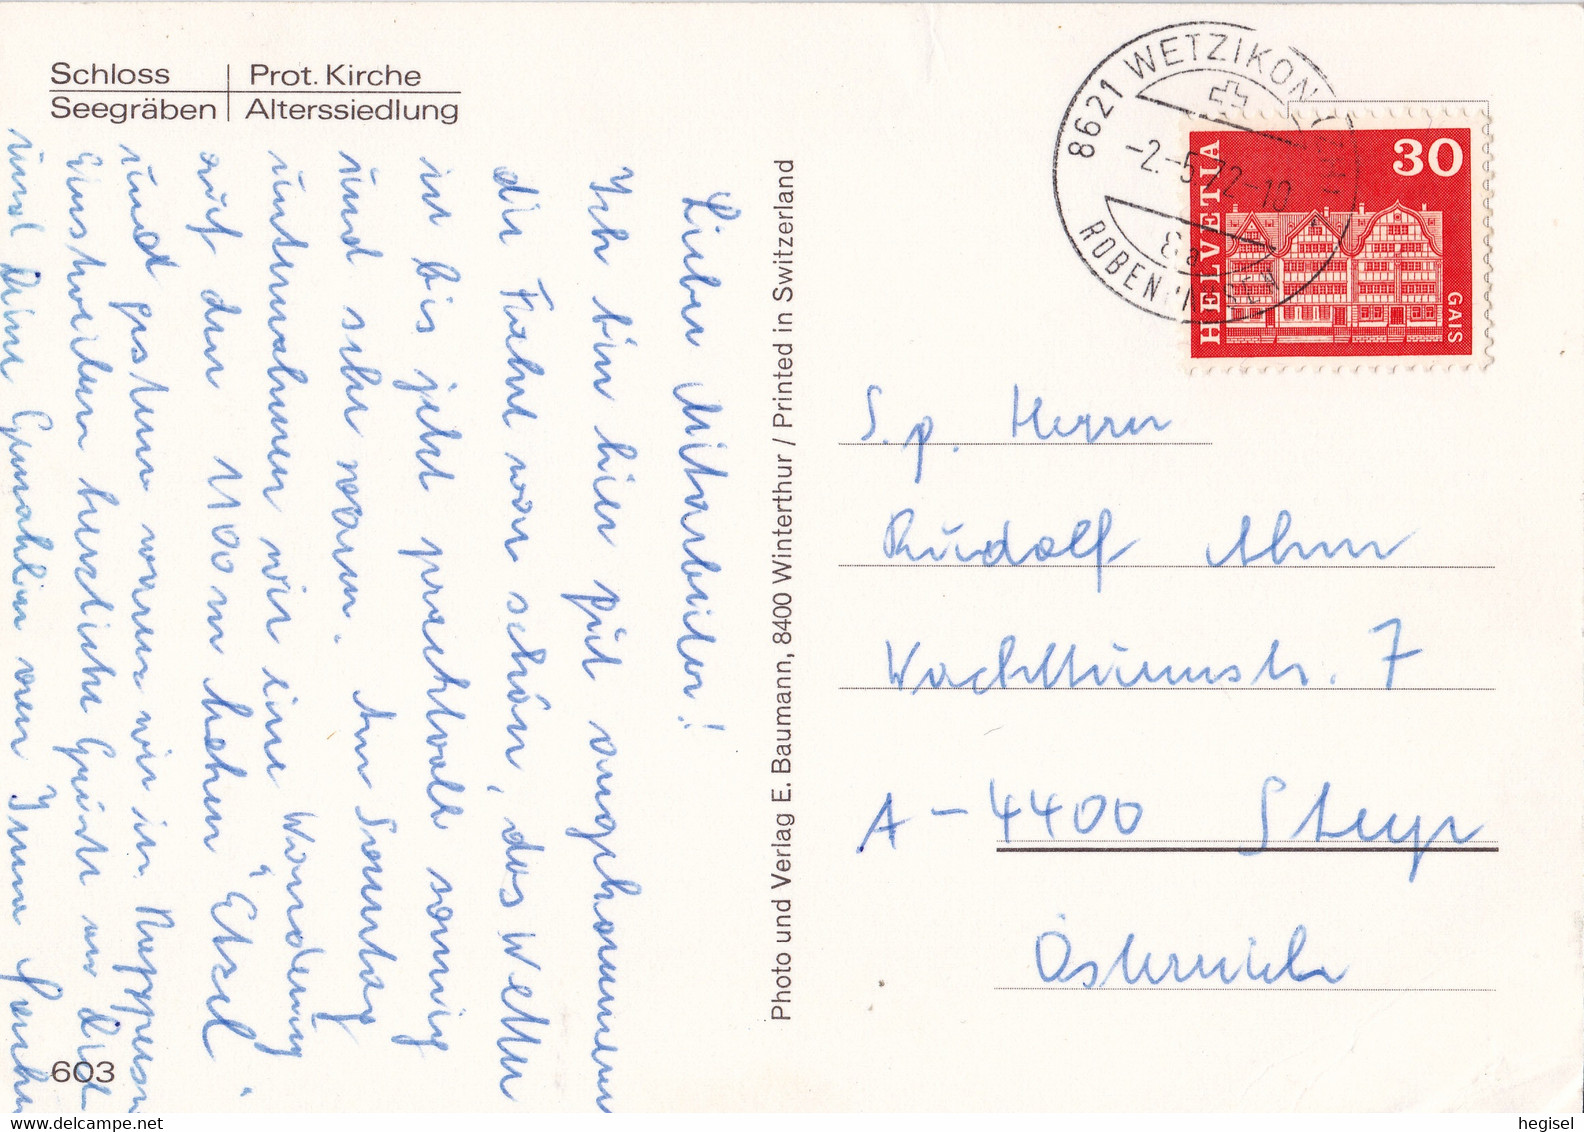 Schloss | Prot. Kirche
Seegräben | Alterssiedlung
Lieber Mitarbeiter!
Ich bin hier gut angekommen
die Fahrt war schön, das Wetter
ist bis jetzt prachtvoll sonnig
und sehr warm. Am Sonntag
unternahmen wir eine Wanderung
auf den 1100 m hohen "Etzel"
und gestern waren wir in
Einstweilen herzliche Grüße an Dich
und Deine Gemahlin von
603
Photo und Verlag E. Baumann, 8400 Winterthur / Printed in Switzerland
8621 WETZIKON
-2.-5.72-10
ROBENHAUSEN
HELVETIA
30
GAIS
S. p. Herrn
Rudolf
Wachtturmstr. 7
A-4400 Steyr
Österreich
hegisel